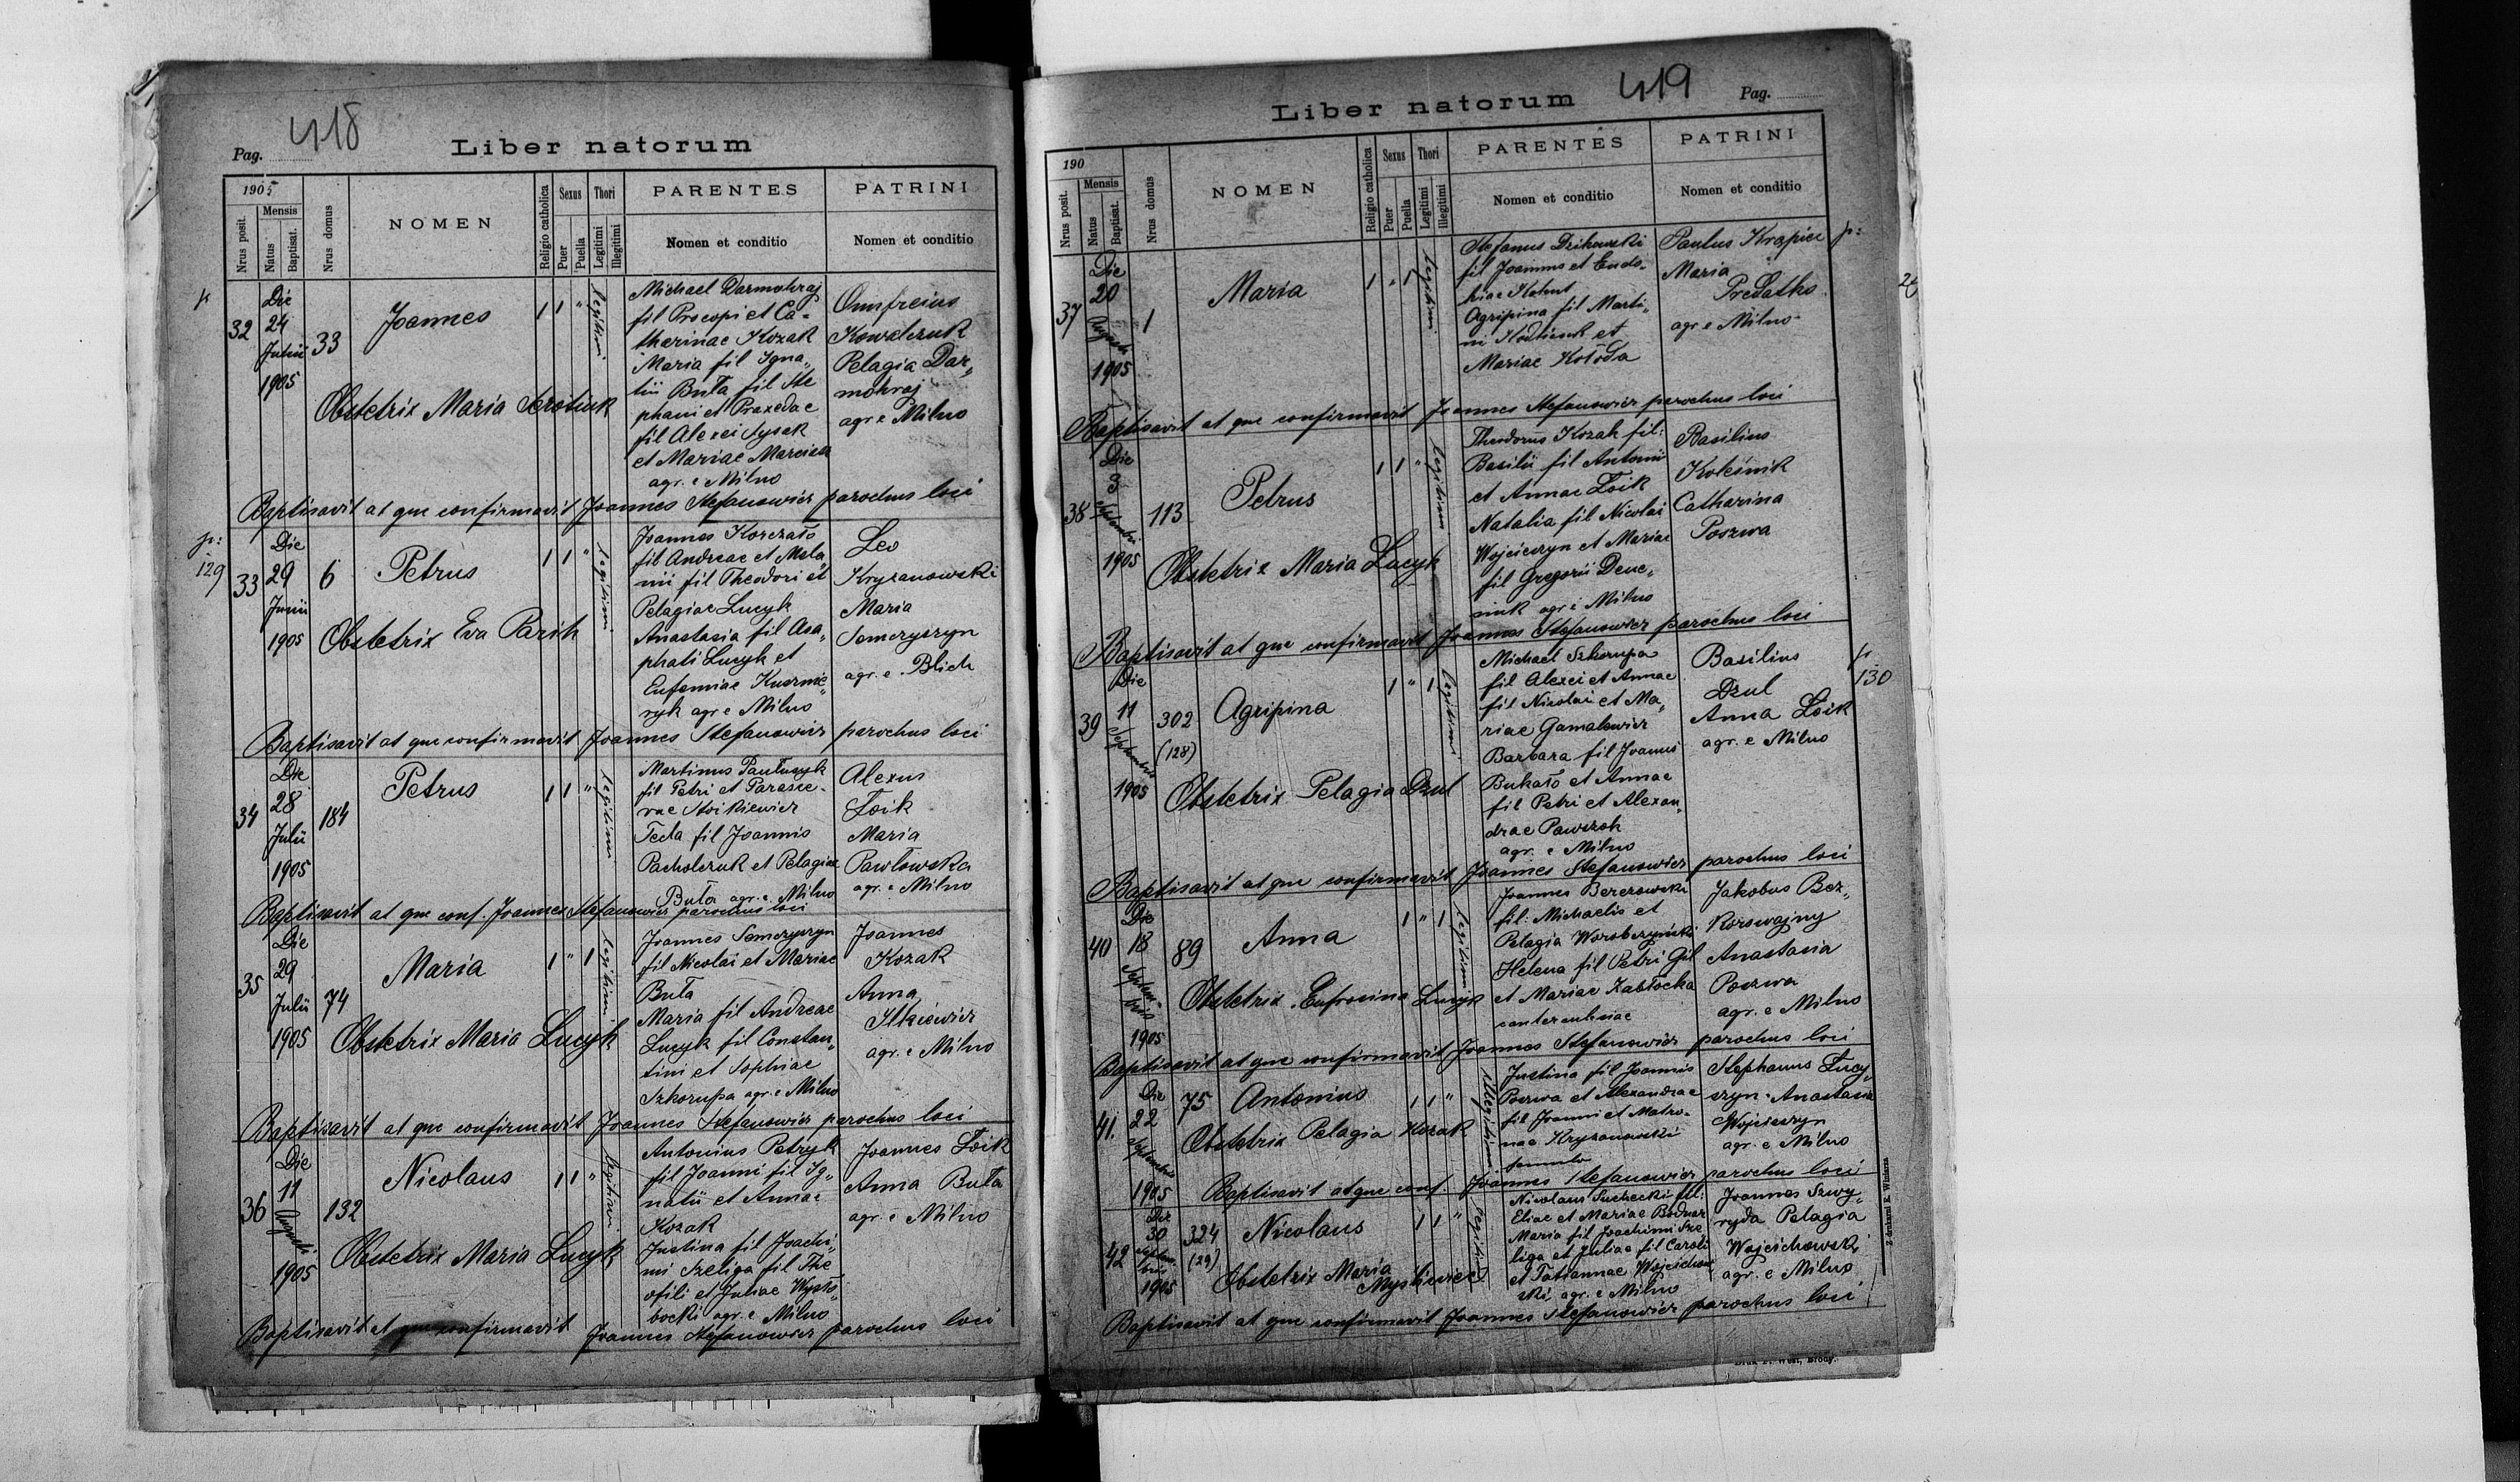 418
Pag.
Liber natorum
1905
Nrus posit.
Mensis
Natus
Baptisat.
Nrus domus
NOMEN
Religio catholica
Sexus
Puer
Puella
Thori
Legitimi
Illegitimi
PARENTES
Nomen et conditio
PATRINI
Nomen et conditio
32
Die
24
Julii
1905
33
Joannes
1 1 "
legitimi
Obstetrix Maria
Michael Darmohraj
fil Procopi et Ca-
therinae Kozak
Maria fil Igna„
tii Buta fil Ste
phani et Praxedae
fil Alexei Sysak
et Mariae
agr. e Milno
Onufreius
Kowalczuk
Pelagia Dar„
mohraj
agr e Milno
Baptisavit at que confirmavit Joannes Stefanowicz parochus loci
p:
129
33
Die
29
Junii
1905
6
Petrus
1 1 "
legitimi
Obstetrix Eva Parik
Joannes Korczało
fil Andreae et Mela
nii fil Theodori et
Pelagiae Lucyk
Anastasia fil Asa„
phati Lucyk et
Eufemiae Kuzmie
ryk agr e Milno
Leo
Kryzanowski
Maria
Semczyszyn
agr. e Blich
Baptisavit at que confirmavit Joannes Stefanowicz parochus loci
34
Die
28
Julii
1905
184
Petrus
1 1 "
legitimi
Martinus
fil Petri et Parasce-
vae
Tecla fil Joannis
Pacholczuk et Pelagiae
Buta agr. e. Milno
Alexus
Łoik
Maria
Pawłowska
agr. e Milno
Baptisavit at que conf. Joannes Stefanowicz parochus loci
35
Die
29
Julii
1905
74
Maria
1 " 1
legitimi
Obstetrix Maria Lucyk
Joannes Semczyszyn
fil Nicolai et Mariae
Buta
Maria fil Andreae
Lucyk fil Constan„
tini et Sophiae
Szkorupa agr. e Milno
Joannes
Kozak
Anna
Ilkiewicz
agr. e Milno
Baptisavit at que confirmavit Joannes Stefanowicz parochus loci
36
Die
11
Augusti
1905
132
Nicolaus
1 1 "
legitimi
Obstetrix Maria Lucyk
Antonius Petryk
fil Joanni fil Ig„
natii et Annae
Kozak
Justina fil Joachi„
mi Szeliga fil The
ofili et Juliae Wysło
bocki agr. e Milno
Joannes Łoik
Anna Buta
agr. e Milno
Baptisavit at que confirmavit Joannes Stefanowicz parochus loci
419
Liber natorum
Pag.
190
Nrus posit.
Mensis
Natus
Baptisat.
Nrus domus
NOMEN
Religio catholica
Sexus
Puer
Puella
Thori
Legitimi
Illegitimi
PARENTES
Nomen et conditio
PATRINI
Nomen et conditio
37
Die
20
Augusti
1905
1
Maria
1 " 1
legitimi
Stefanus Dzikowski
fil Joannis et Eudo-
kiae
Agripina fil Marti„
ni et
Mariae Kołoda
Paulus Krapicz
Maria
Predatko
agr e Milno
p:
Baptisavit at que confirmavit Joannes Stefanowicz parochus loci
38
Die
3
Septembris
1905
113
Petrus
1 1 "
legitimi
Obstetrix Maria Lucyk
Theodorus Kozak fil:
Basilii fil Antonii
et Annae Łoik
Natalia fil Nicolai
Wojcieszyn et Mariae
fil Gregorii Dene„
siuk agr e Milno
Basilius
Koleśnik
Catharina
Poszwa
Baptisavit at que confirmavit Joannes Stefanowicz parochus loci
39
Die
11
Septembris
1905
302
(128)
Agripina
1 " 1
legitimi
Obstetrix Pelagia Dzul
Michael Szkorupa
fil Alexei et Annae
fil Nicolai et Ma„
riae Gamalewicz
Barbara fil Joanni
Bukało et Annae
fil Petri et Alexan„
drae Pawszok
agr. e Milno
Basilius
Dzul
Anna Łoik
agr. e Milno
130
Baptisavit at que confirmavit Joannes Stefanowicz parochus loci
40
Die
18
Septem-
bris
1905
89
Anna
1 " 1
legitimi
Obstetrix Eufrosina Lucyk
Joannes Berezowski
fil: Michaelis et
Pelagia
Helena fil Petri Gil
et Mariae Zabłocka
Jakobus Bez„
Korowajny
Anastasia
Poszwa
agr. e Milno
Baptisavit at que confirmavit Joannes Stefanowicz parochus loci
41.
Die
22
Septembris
1905
75
Antonius
1 1 "
illegitimi
Obstetrix Pelagia Kozak
Justina fil Joannis
Poszwa et Alexandrae
fil Joanni et Matro-
nae Kryzanowski
famula
Stephanus Łucy„
szyn. Anastasia
Wojcieszyn
agr. e Milno
Baptisavit at que conf. Joannes Stefanowicz parochus loci
42
Die
30
Septem-
bris
1905
324
(29)
Nicolaus
1 1 "
legitimi
Obstetrix Maria
Mysliewiec
Nicolaus Suchecki fil:
Eliae et Mariae Bodnar
Maria fil Joachimi Sze
liga et Juliae fil Caroli
et Tatiannae Wojcichow
ski, agr. e Milno
Joannes Szwy„
ryda Pelagia
Wojcichowski
agr. e Milno
Baptisavit at que confirmavit Joannes Stefanowicz parochus loci
Z drukarni E. Winiarza
Druk F. West, Brody.